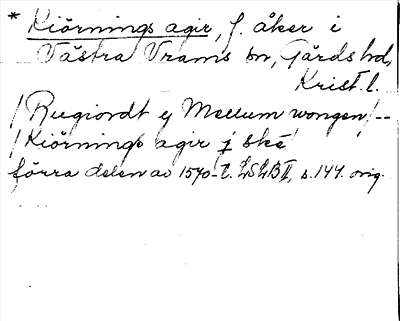 * Kiörnings agir, f. åker i
Västra Vrams sn, Gärds hd,
Krist. l.
/ Rugiordt ej Mellum wongen /--
/ Kiörnings agir j ské
förra delen av 1570-t. LSLB II, s. 144. orig.